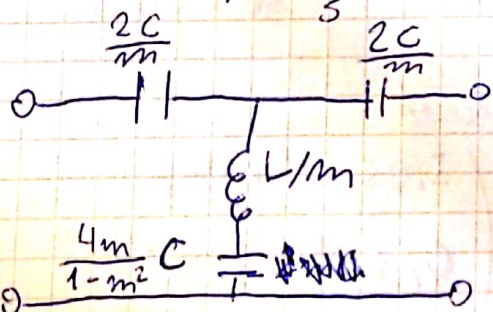 2C/m
2C/m
L/m
4m/1-m² C